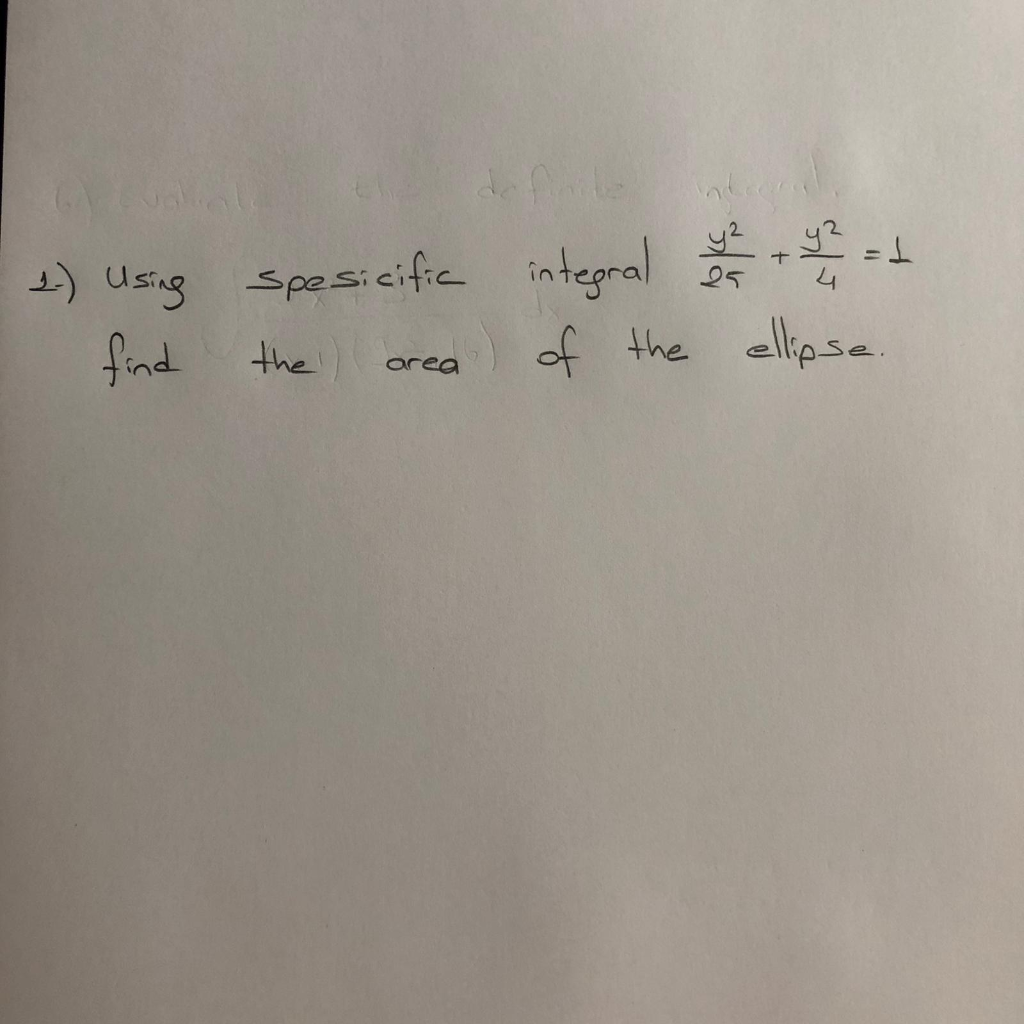 1-) Using spesicific integral y²/25 + y²/4 = 1
find the area of the ellipse.